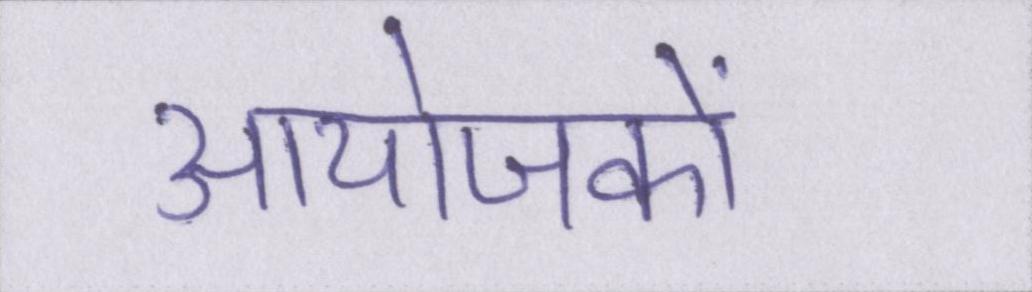 आयोजकों